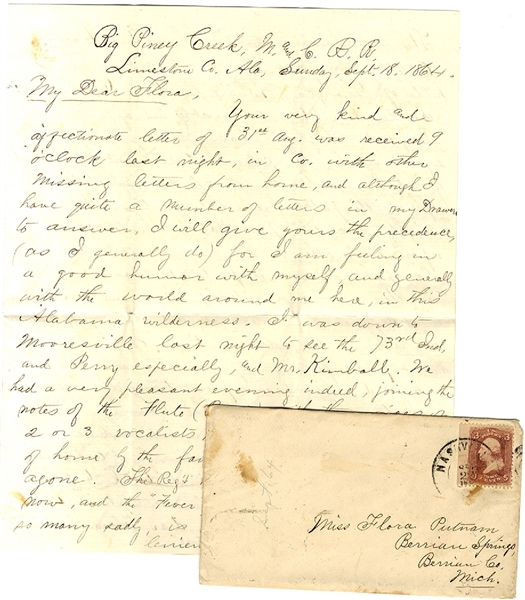 Big Piney Creek, M. and C. R. R.
Limestone Co. Ala, Sunday, Sept. 18. 1864.
My Dear Flora,
Your very kind and
affectionate letter of 31st Aug. was received 9
o'clock last night, in Co. with other
missing letters from home, and although I
have quite a number of letters in my Drawer
to answer, I will give yours the precedence,
(as I generally do) for I am feeling in
a good humor with myself, and generally
with the world around me here, in this
Alabama wilderness. I was down to
Mooresville last night to see the 73rd Ind,
and Perry especially, and Mr. Kimball. We
had a very pleasant evening indeed, joining the
notes of the Flute (
2 or 3 vocalists
of home & the
agone. The Reg't
now, and the "Fever
so many sadly, is
NASHV
3 3
Sept 64
Miss Flora Putnam
Berrian Springs,
Berrian Co.
Mich.